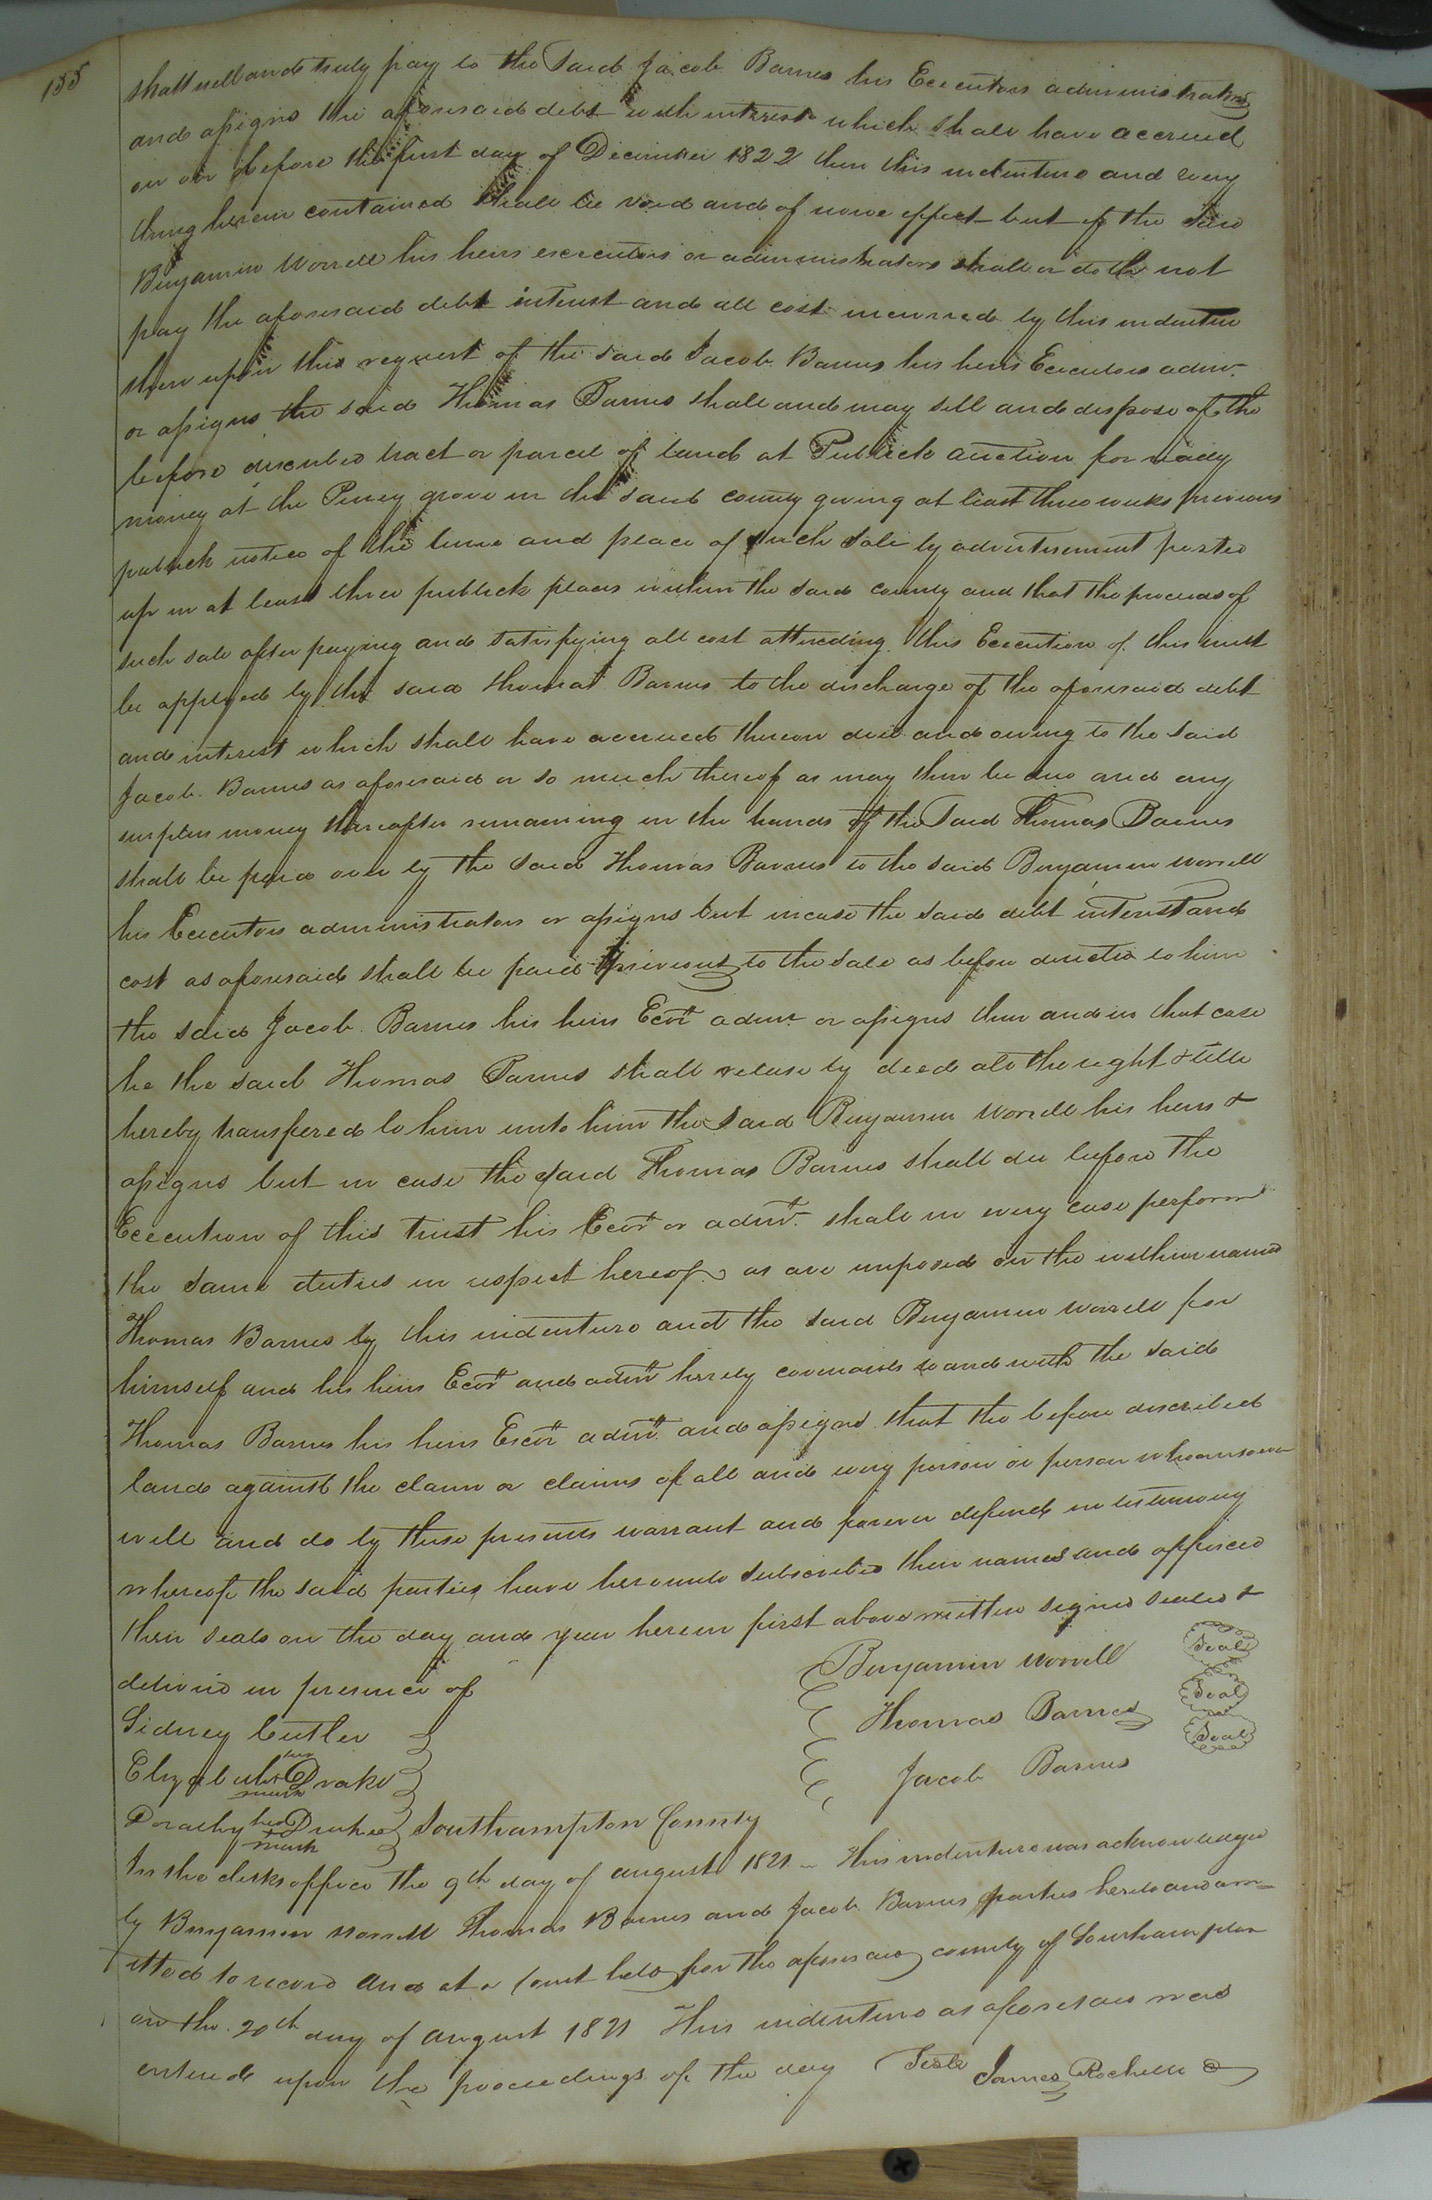 155
shall well and truly pay to the said Jacob Barnes his Executors administrators
and assigns the aforesaid debt with interest which shall have accrued
on or before the first day of December 1822 then this indenture and every
thing herein contained shall be void and of none effect but if the said
Benjamin Worrell his heirs executors or administrators shall or doth not
pay the aforesaid debt interest and all cost incurred by this indenture
then upon this request of the said Jacob Barnes his heirs Executors admr.
or assigns the said Thomas Barnes shall and may sell and dispose of the
before described tract or parcel of land at Publick auction for ready
money at the Piney grove in the said county giving at least three weeks previous
publick notice of the time and place of such sale by advertisement posted
up in at least three publick places within the said county and that the proceeds of
such sale after paying and satisfying all cost attending this Execution of this trust
be applyed by the said Thomas Barnes to the discharge of the aforesaid debt
and interest which shall have accrued thereon due and owing to the said
Jacob Barnes as aforesaid or so much thereof as may then be due and any
surplus money thereafter remaining in the hands of the said Thomas Barnes
shall be paid over by the said Thomas Barnes to the said Benjamin Worrell
his Executors administrators or assigns but incase the said debt interest and
cost as aforesaid shall be paid previous to the sale as before directed to him
the said Jacob Barnes his heirs Exor admr or assigns then and in that case
he the said Thomas Barnes shall release by deed all the right & title
hereby transfered to him unto him the said Benjamin Worrell his heirs &
assigns but in case the said Thomas Barnes shall die before the
Execution of this trust his Exor or admr. shall in every case perform
the same duties in respect hereof as are imposed on the within named
Thomas Barnes by this indenture and the said Benjamin Worrell for
himself and his heirs Exor and admr hereby covenants to and with the said
Thomas Barnes his heirs Exor admr and assigns that the before described
land against the claim or claims of all and every person or person whomsoever
will and do by these presents warrant and forever defend in testimony
whereof the said parties have hereunto subscribed their names and affixed
their seals on the day and year herein first above written signed sealed &
delivered in presence of
Benjamin Worrell Seal
Thomas Barnes Seal
Jacob Barnes Seal
Sidney Cutler
Elizabeth her + mark Drake
Dorathy her + mark Drake
Southampton County
In the clerks office the 9th day of august 1821 This indenture was acknowledged
by Benjamin Worrell Thomas Barnes and Jacob Barnes parties hereto and am-
itted to record and at a Court held for the aforesaid county of Southampton
on the 20th day of august 1821 This indenture as aforesaid was
entered upon the proceedings of the day Teste James Rochelle